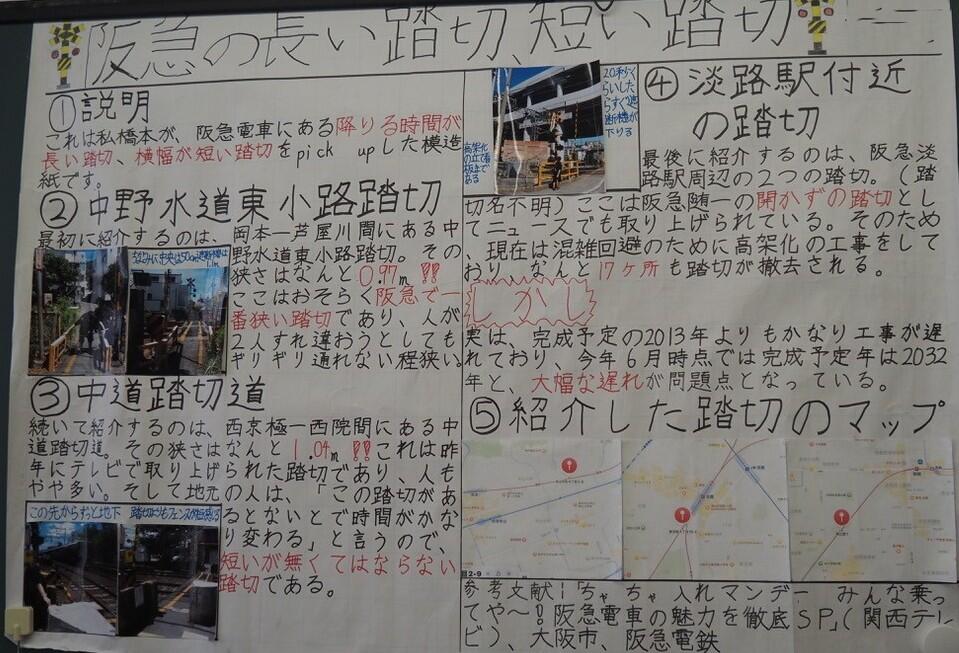 阪急の長い踏切、短い踏切
①説明
これは私橋本が、阪急電車にある降りる時間が
長い踏切、横幅が短い踏切をpick upした模造
紙です。
②中野水道東小路踏切
最初に紹介するのは、岡本ー芦屋川間にある中
野水道東小路踏切。その
狭さはなんと0.97m!!
ここはおそらく阪急で一
番狭い踏切であり、人が
2人すれ違おうとしても
ギリギリ通れない程狭い。
③中道踏切道
続いて紹介するのは、西京極ー西院間にある中
道踏切道。その狭さはなんと1.04m!!これは昨
年にテレビで取り上げられた踏切であり、人も
やや多い。そして地元の人は、「この踏切があ
るとないとで時間がかな
り変わる」と言うので、
短いが無くてはならない
踏切である。
この先からずっと地下
20秒くらいしたらすぐ遮断機が下りる
高架化の立て看板まである
④淡路駅付近
の踏切
最後に紹介するのは、阪急淡
路駅周辺の2つの踏切。(踏
切名不明)ここは阪急随一の開かずの踏切とし
てニュースでも取り上げられている。そのため
、現在は混雑回避のために高架化の工事をして
おり、なんと17ヶ所も踏切が撤去される。
しかし
実は、完成予定の2013年よりもかなり工事が遅
れており、今年6月時点では完成予定年は2032
年と、大幅な遅れが問題点となっている。
⑤紹介した踏切のマップ
参考文献!「ちゃちゃ入れマンデー みんな乗っ
てや〜!阪急電車の魅力を徹底SP」(関西テレ
ビ)、大阪市、阪急電鉄